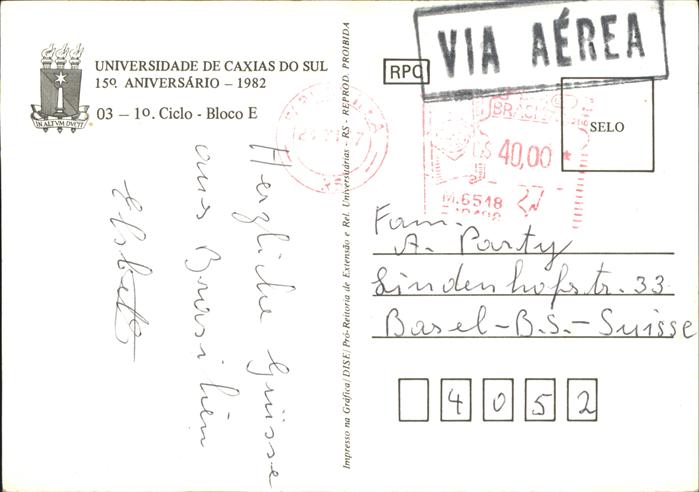 UNIVERSIDADE DE CAXIAS DO SUL
15º. ANIVERSÁRIO – 1982
03 – 1º. Ciclo - Bloco E
IN ALTVM DVCIT
Herzliche Grüsse
aus Brasilien
Elsbeth
Impresso na Gráfica/DISE/Pró-Reitoria de Extensão e Rel. Universitárias - RS - REPROD. PROIBIDA
VIA AÉREA
RPC
SELO
40,00 *
M.6518
Fam.
A. Party
Lindenhofstr. 33
Basel-B.S.-Suisse
4 0 5 2